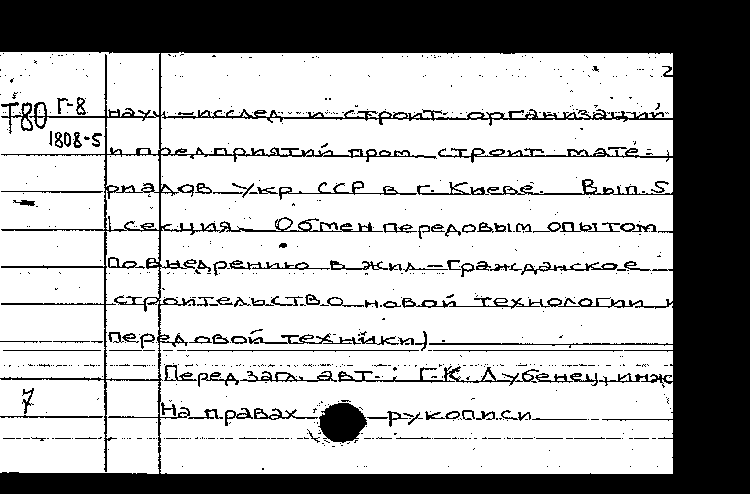 2
Т80 Г-8
1808-5
науч-исслед. и строит. организаций
и предприятий пром. строит. мате-
риалов Укр. ССР в г. Киеве. Вып. 5
1 секция. Обмен передовым опытом
по внедрению в жил-гражданское
строительство новой технологии и
передовой техники).
Перед загл. авт.: Г.К. Лубенец, инж
7
На правах рукописи.